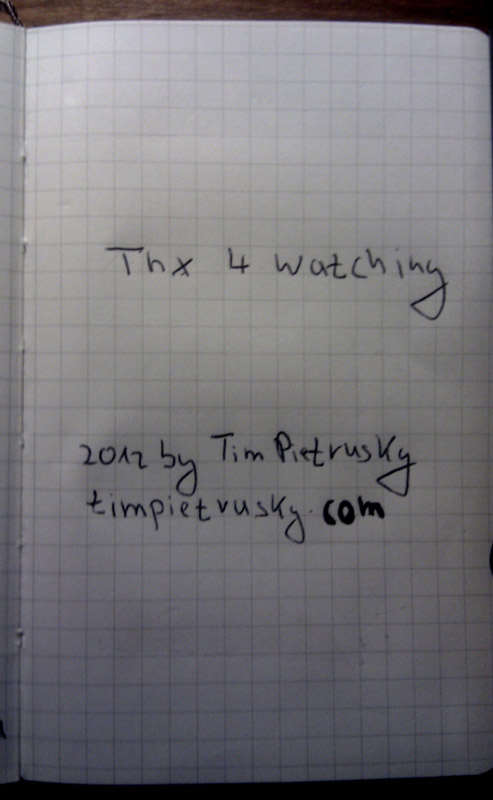 Thx 4 watching
2012 by Tim Pietrusky
timpietrusky.com